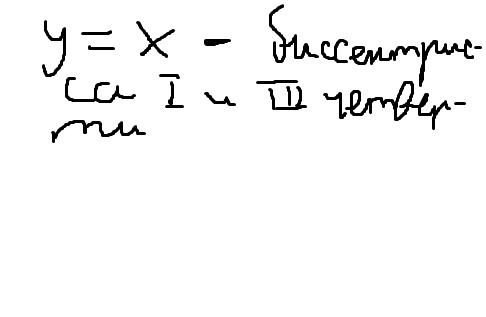 y = x - биссектрис-
са I и III четвер-
ти